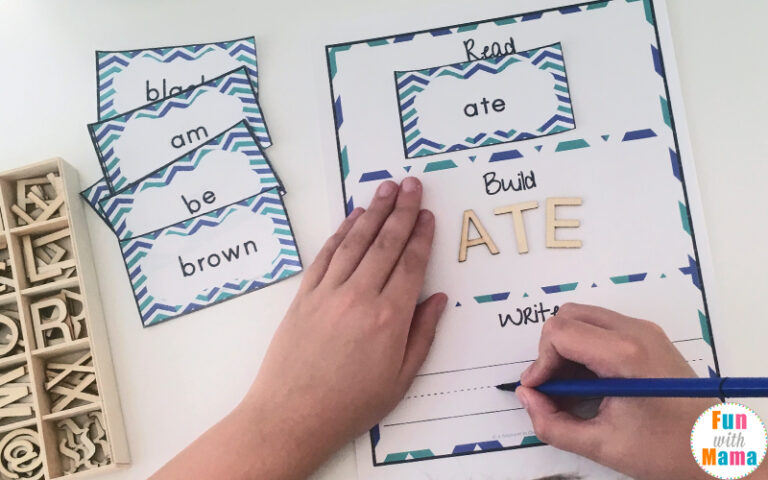 Read
ate
Build
ATE
Write
black
am
be
brown
Fun
with
Mama